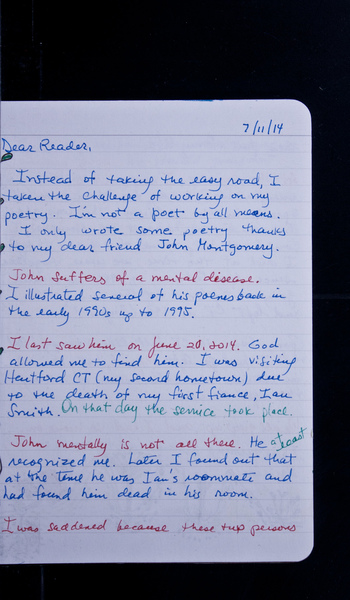 7/11/14
Dear Reader,
Instead of taking the easy road, I
taken the challenge of working on my
poetry. I'm not a poet by all means.
I only wrote some poetry thanks
to my dear friend John Montgomery.
John suffers of a mental disease.
I illustrated several of his poems back in
the early 1990s up to 1995.
I last saw him on June 20, 2014. God
allowed me to find him. I was visiting
Hartford CT (my second hometown) due
to the death of my first fiance, Ian
Smith. On that day the service took place.
John mentally is not all there. He at least
recognized me. Later I found out that
at the time he was Ian's roommate and
had found him dead in his room.
I was saddened because these two persons